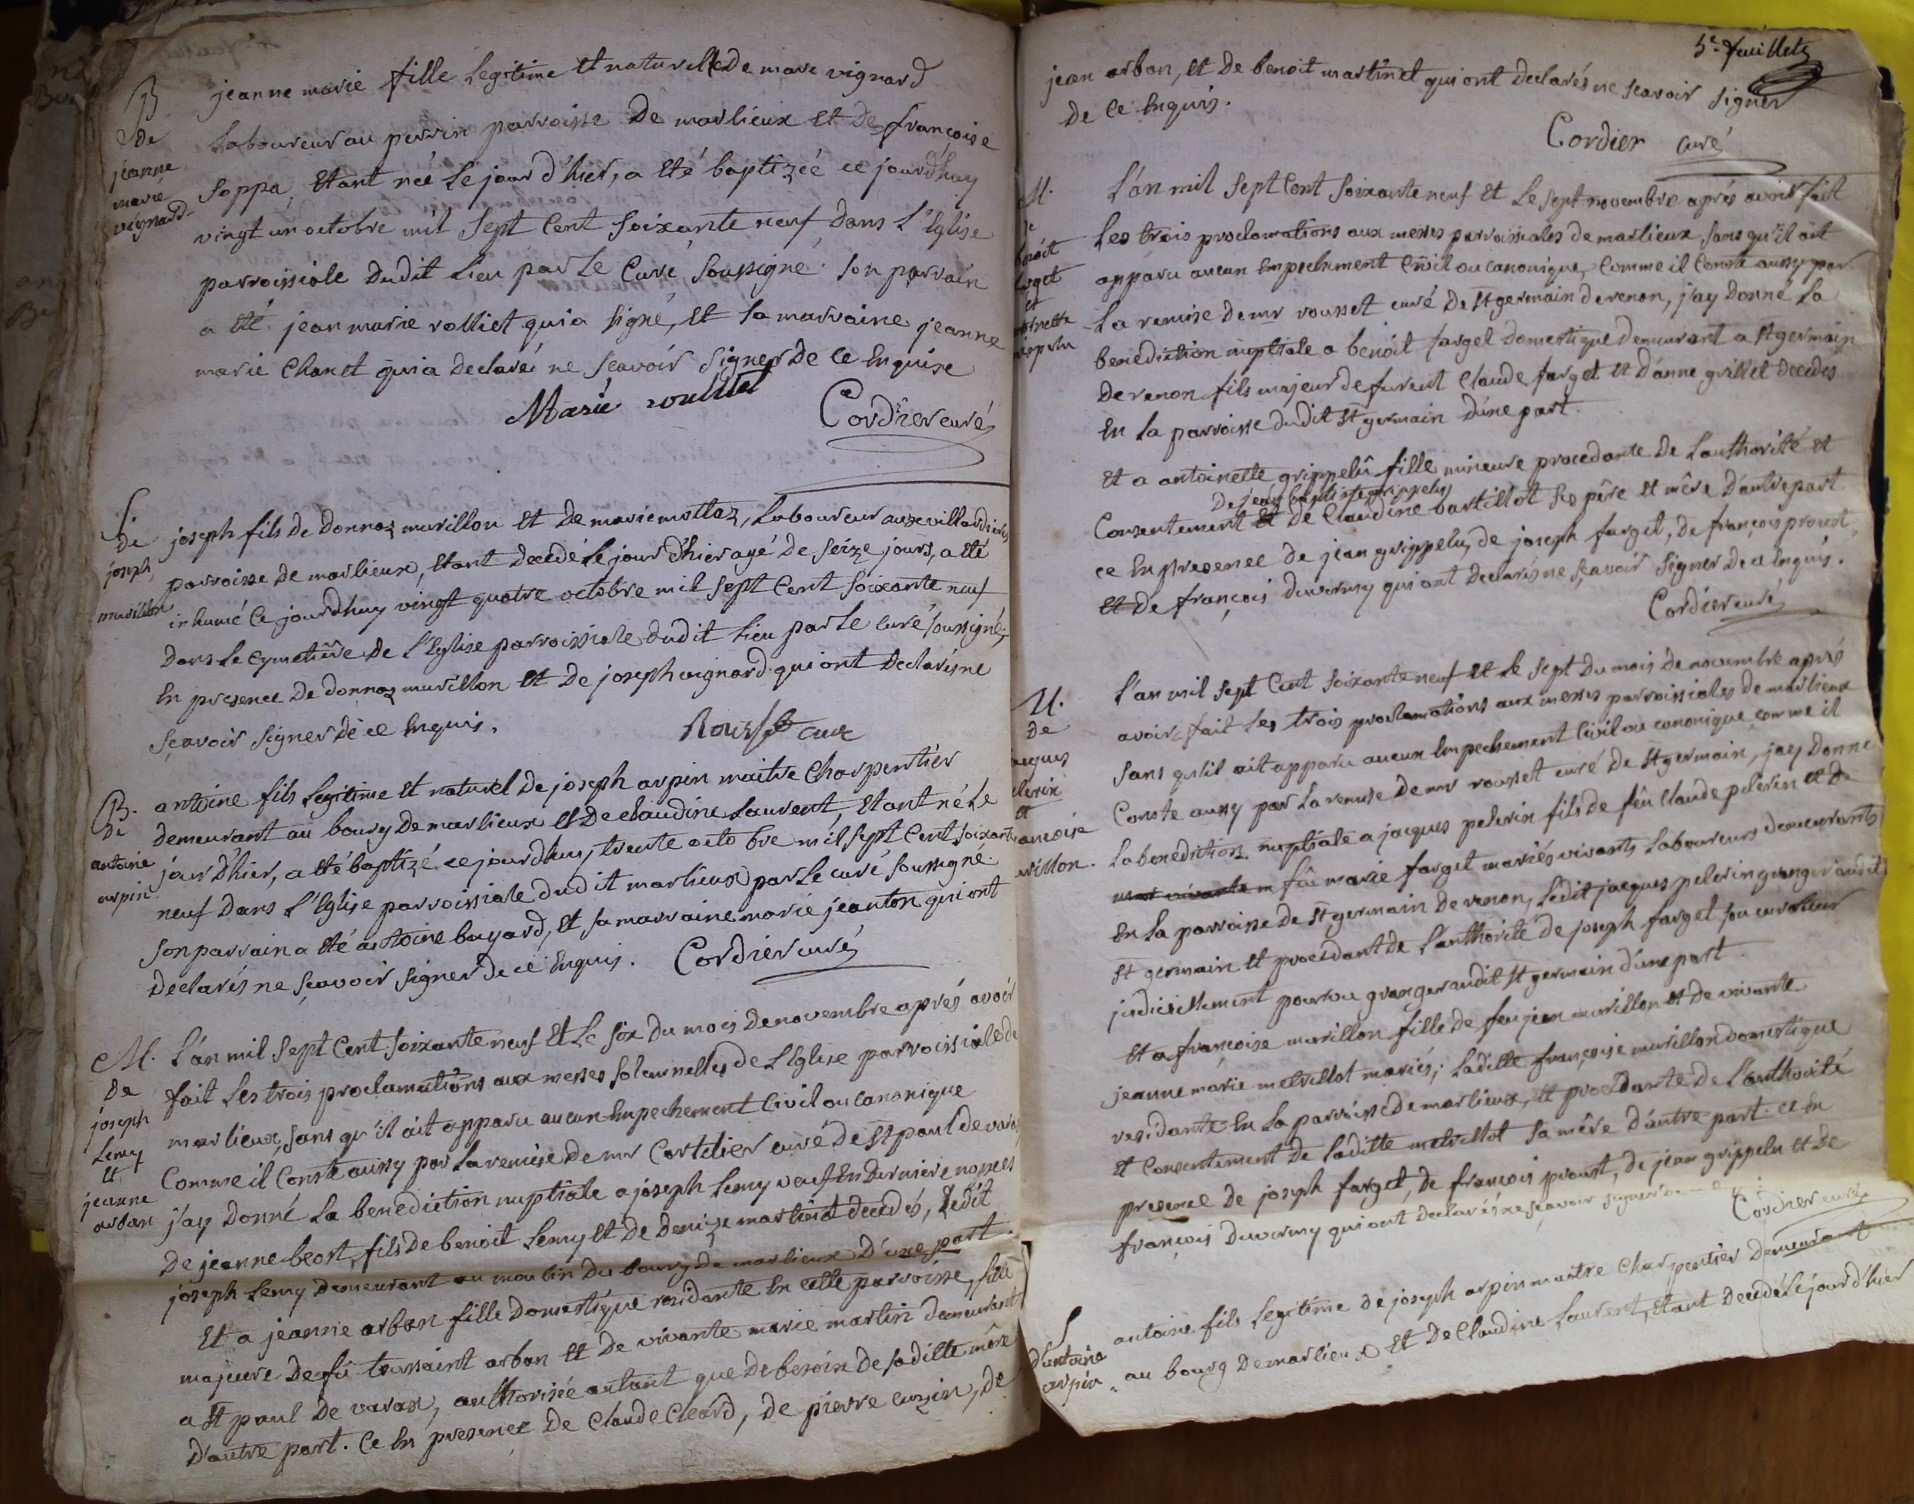 B
de
jeanne
marie
vignard
jeanne marie fille legitime et naturelle de marc vignard
laboureur au perrin parroisse de marlieux et de françoise
soppa, etant née le jour d'hier, a eté baptizée ce jourd'huy
vingt un octobre mil sept cent soixante neuf dans l'Eglise
parroissiale dudit lieu par le curé soussigné. son parrain
a eté jean marie rolliet qui a signé, et sa marraine jeanne
marie Chanet qui a declaré ne scavoir signer de ce Enquise
Marie rolliet Cordier curé
S
de
joseph
murillon
joseph fils de donnaz murillon et de marie mottaz, laboureur aux villardieres
parroisse de marlieux, etant decedé le jour d'hier agé de seize jours, a eté
inhumé ce jourd'huy vingt quatre octobre mil sept cent soixante neuf
dans le cymetiere de l'Eglise parroissiale dudit lieu par le curé soussigné,
En presence de donnaz murillon et de joseph vignard qui ont declarés ne
sçavoir signer de ce Enquis. Rousset curé
B.
de
antoine
arpin
antoine fils legitime et naturel de joseph arpin maitre charpentier
demeurant au bourg de marlieux et de claudine laurent, etant né le
jour d'hier, a eté baptizé ce jourd'huy trente octobre mil sept cent soixante
neuf dans l'Eglise parroissiale dudit marlieux par le curé soussigné.
son parrain a eté antoine bayard, et sa marraine marie jeanton qui ont
declarés ne sçavoir signer de ce Enquis. Cordier curé
M.
de
joseph
Lemy
et
jeanne
arban
L'an mil sept cent soixante neuf et le six du mois de novembre aprés avoir
fait les trois proclamations aux messes solemnelles de l'Eglise parroissiale de
marlieux, sans qu'il ait apparu aucun Empechement civil ou canonique
Comme il conste aussy par la remise de mr Cortelier curé de St paul de varax
j'ay donné la benediction nuptiale a joseph Lemy veuf En derniere nopces
de jeanne beost, fils de benoit Lemy et de denize martinet decedés, ledit
joseph Lemy demeurant au moulin du bourg de marlieux d'une part.
Et a jeanne arban fille domestique residante En cette parroisse, fille
majeure de fû toussaint arban et de vivante marie martin demeurant
a St paul de varax, authorisée autant que de besoin de saditte mere
d'autre part. Ce En presence de Claude Cleard, de pierre cuzin, de
5e feuillet
jean arban, et de benoit martinet qui ont declarés ne scavoir signer
de ce Enquis.
Cordier curé
M.
benoit
farget
et
antoinette
grippelu
L'an mil sept cent soixante neuf et le sept novembre aprés avoir fait
les trois proclamations aux messes parroissiales de marlieux sans qu'il ait
apparu aucun Empechement Civil ou canonique, Comme il Conste aussy par
la remise de mr rousset curé de St germain de renon, j'ay donné la
benediction nuptiale a benoit farget domestique demeurant a St germain
de renon fils majeur de furent Claude farget et d'anne grillet decedés
En la parroisse dudit St germain d'une part.
Et a antoinette grippelû fille mineure procedante de l'authorité et
de jean baptiste grippelu
Consentement et de Claudine bartillot ses pére et mére d'autre part
ce En presence de jean grippelu, de joseph farget, de françois proust,
et de françois duverny qui ont declarés ne sçavoir signer de ce Enquis.
Cordier curé
M.
de
jacques
pelerin
et
francoise
murillon.
L'an mil sept Cent soixante neuf et le sept du mois de novembre aprés
avoir fait les trois proclamations aux messes parroissiales de marlieux
sans qu'il ait apparu aucun Empechement Civil ou canonique comme il
Conste aussy par la remise de mr rousset curé de St germain, j'ay donné
la benediction nuptiale a jacques pelerin fils de feu Claude pelerin et de
fûe marie farget mariés vivants laboureurs demeurants
En la parroisse de St germain de renon, ledit jacques pelerin granger audit
St germain et procedant de l'authorité de joseph farget son curateur
judiciellement pourvu granger audit St germain d'une part.
Et a françoise murillon fille de feu jean murillon et de vivante
jeanne marie metrillot mariés; laditte françoise murillon domestique
residante En la parroisse de marlieux, et procedante de l'authorité
et Consentement de laditte metrillot sa mére d'autre part. ce En
presence de joseph farget, de françois proust, de jean grippelu et de
françois duverny qui ont declarés ne sçavoir signer
Cordier curé
S
d'antoine
arpin
antoine fils legitime de joseph arpin maitre Charpentier demeurant
au bourg de marlieux et de Claudine laurent, etant decedé le jour d'hier